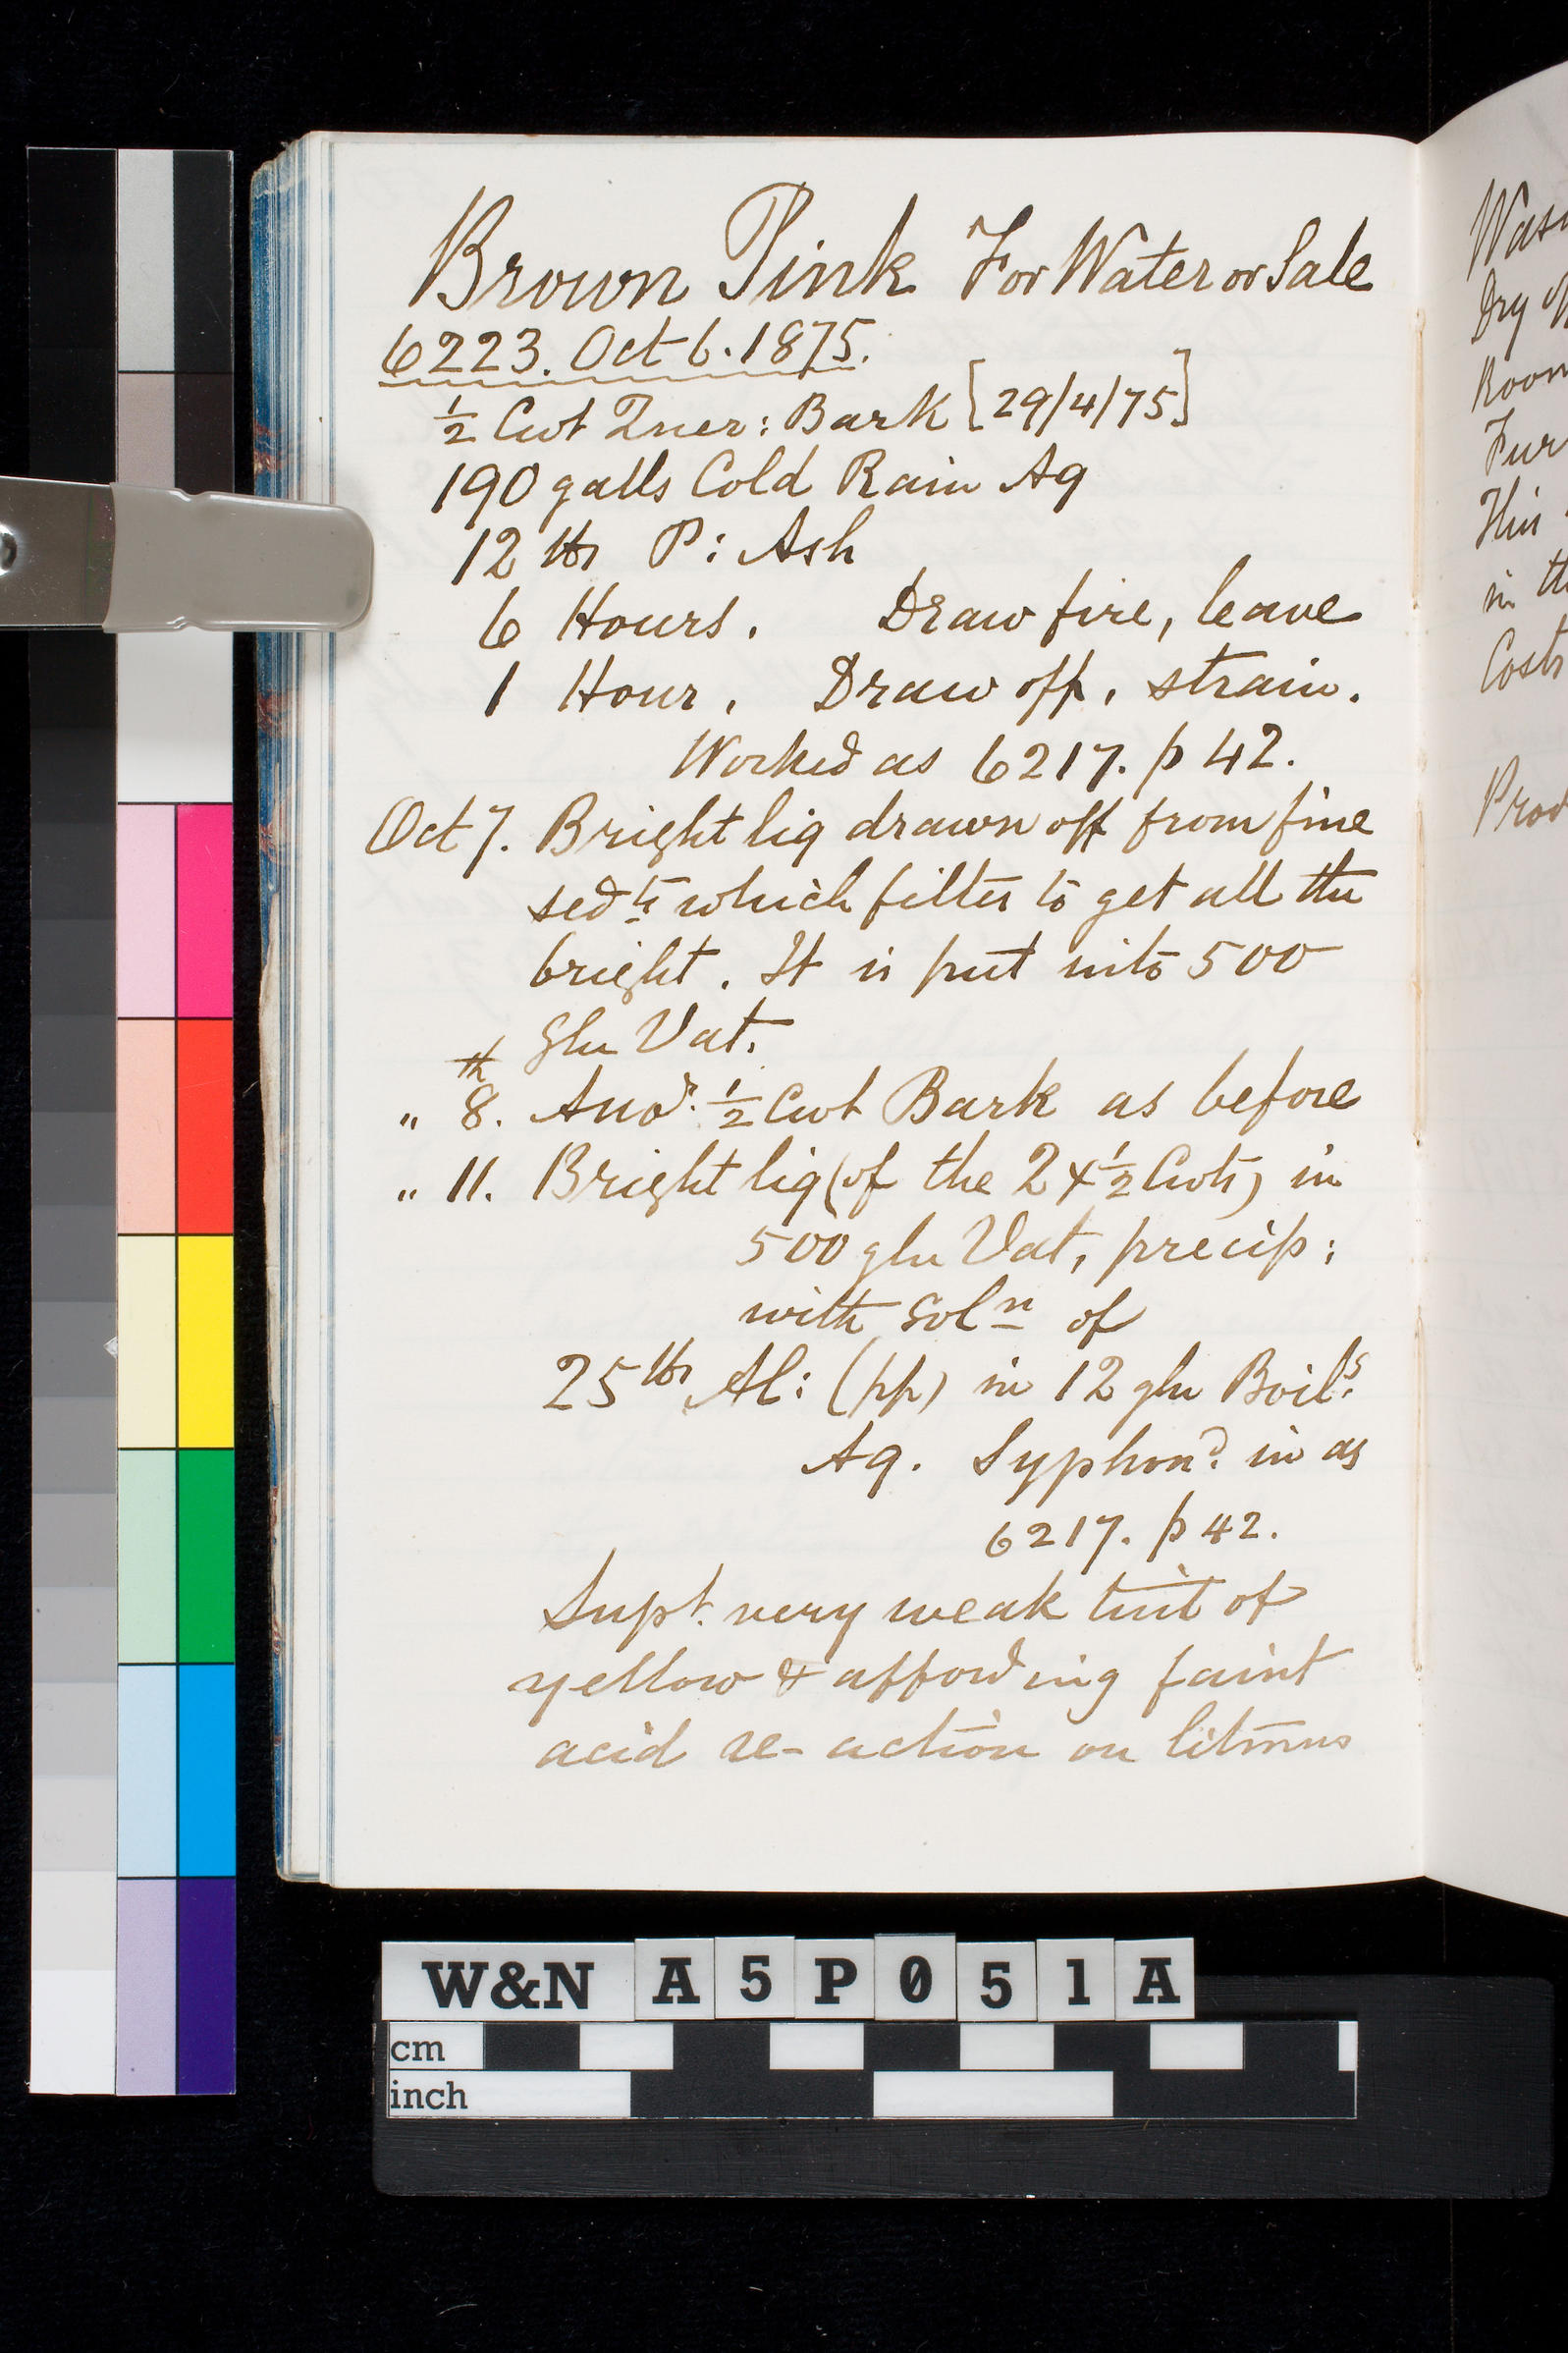 Brown Pink For Water or Sale
6223. Oct 6. 1875.
½ Cwt Quer: Bark [29/4/75]
190 galls Cold Rain Aq
12 lbs P: Ash
6 Hours. Draw fire, leave
1 Hour. Draw off, strain.
Worked as 6217. p 42.
Oct 7. Bright liq drawn off from fine
sedts which filter to get all the
bright. It is put into 500
gln Vat.
" 8th. Anor. ½ Cwt Bark as before
" 11. Bright liq (of the 2 x ½ Cwts) in
500 gln Vat, precip:
with Soln of
25 lbs Al: (pp) in 12 gln Boilg.
Aq. Syphond. in as
6217. p 42.
Supt. very weak tint of
yellow & affording faint
acid re-action on litmus
Was
Dry of
Room
Fur
This
in th
Costs
Prod
W&N A 5 P 0 5 1 A
cm
inch